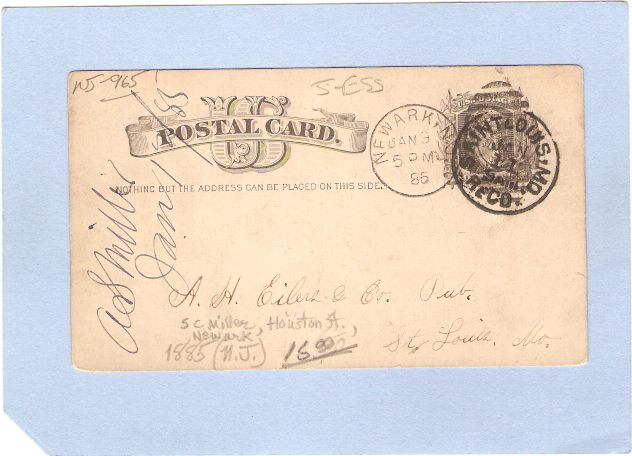 NJ-965
J-ESS
U S
POSTAL CARD.
NOTHING BUT THE ADDRESS CAN BE PLACED ON THIS SIDE.
NEWARK N.J.
JAN 9
5 PM
85
SAINT LOUIS, MO.
REC'D.
A S Miller
Jany / 85
A. H. Eilers & Co. Pub.
St. Louis. Mo.
S C Miller, Houston St.,
Newark
1885 (N.J.)
16.00